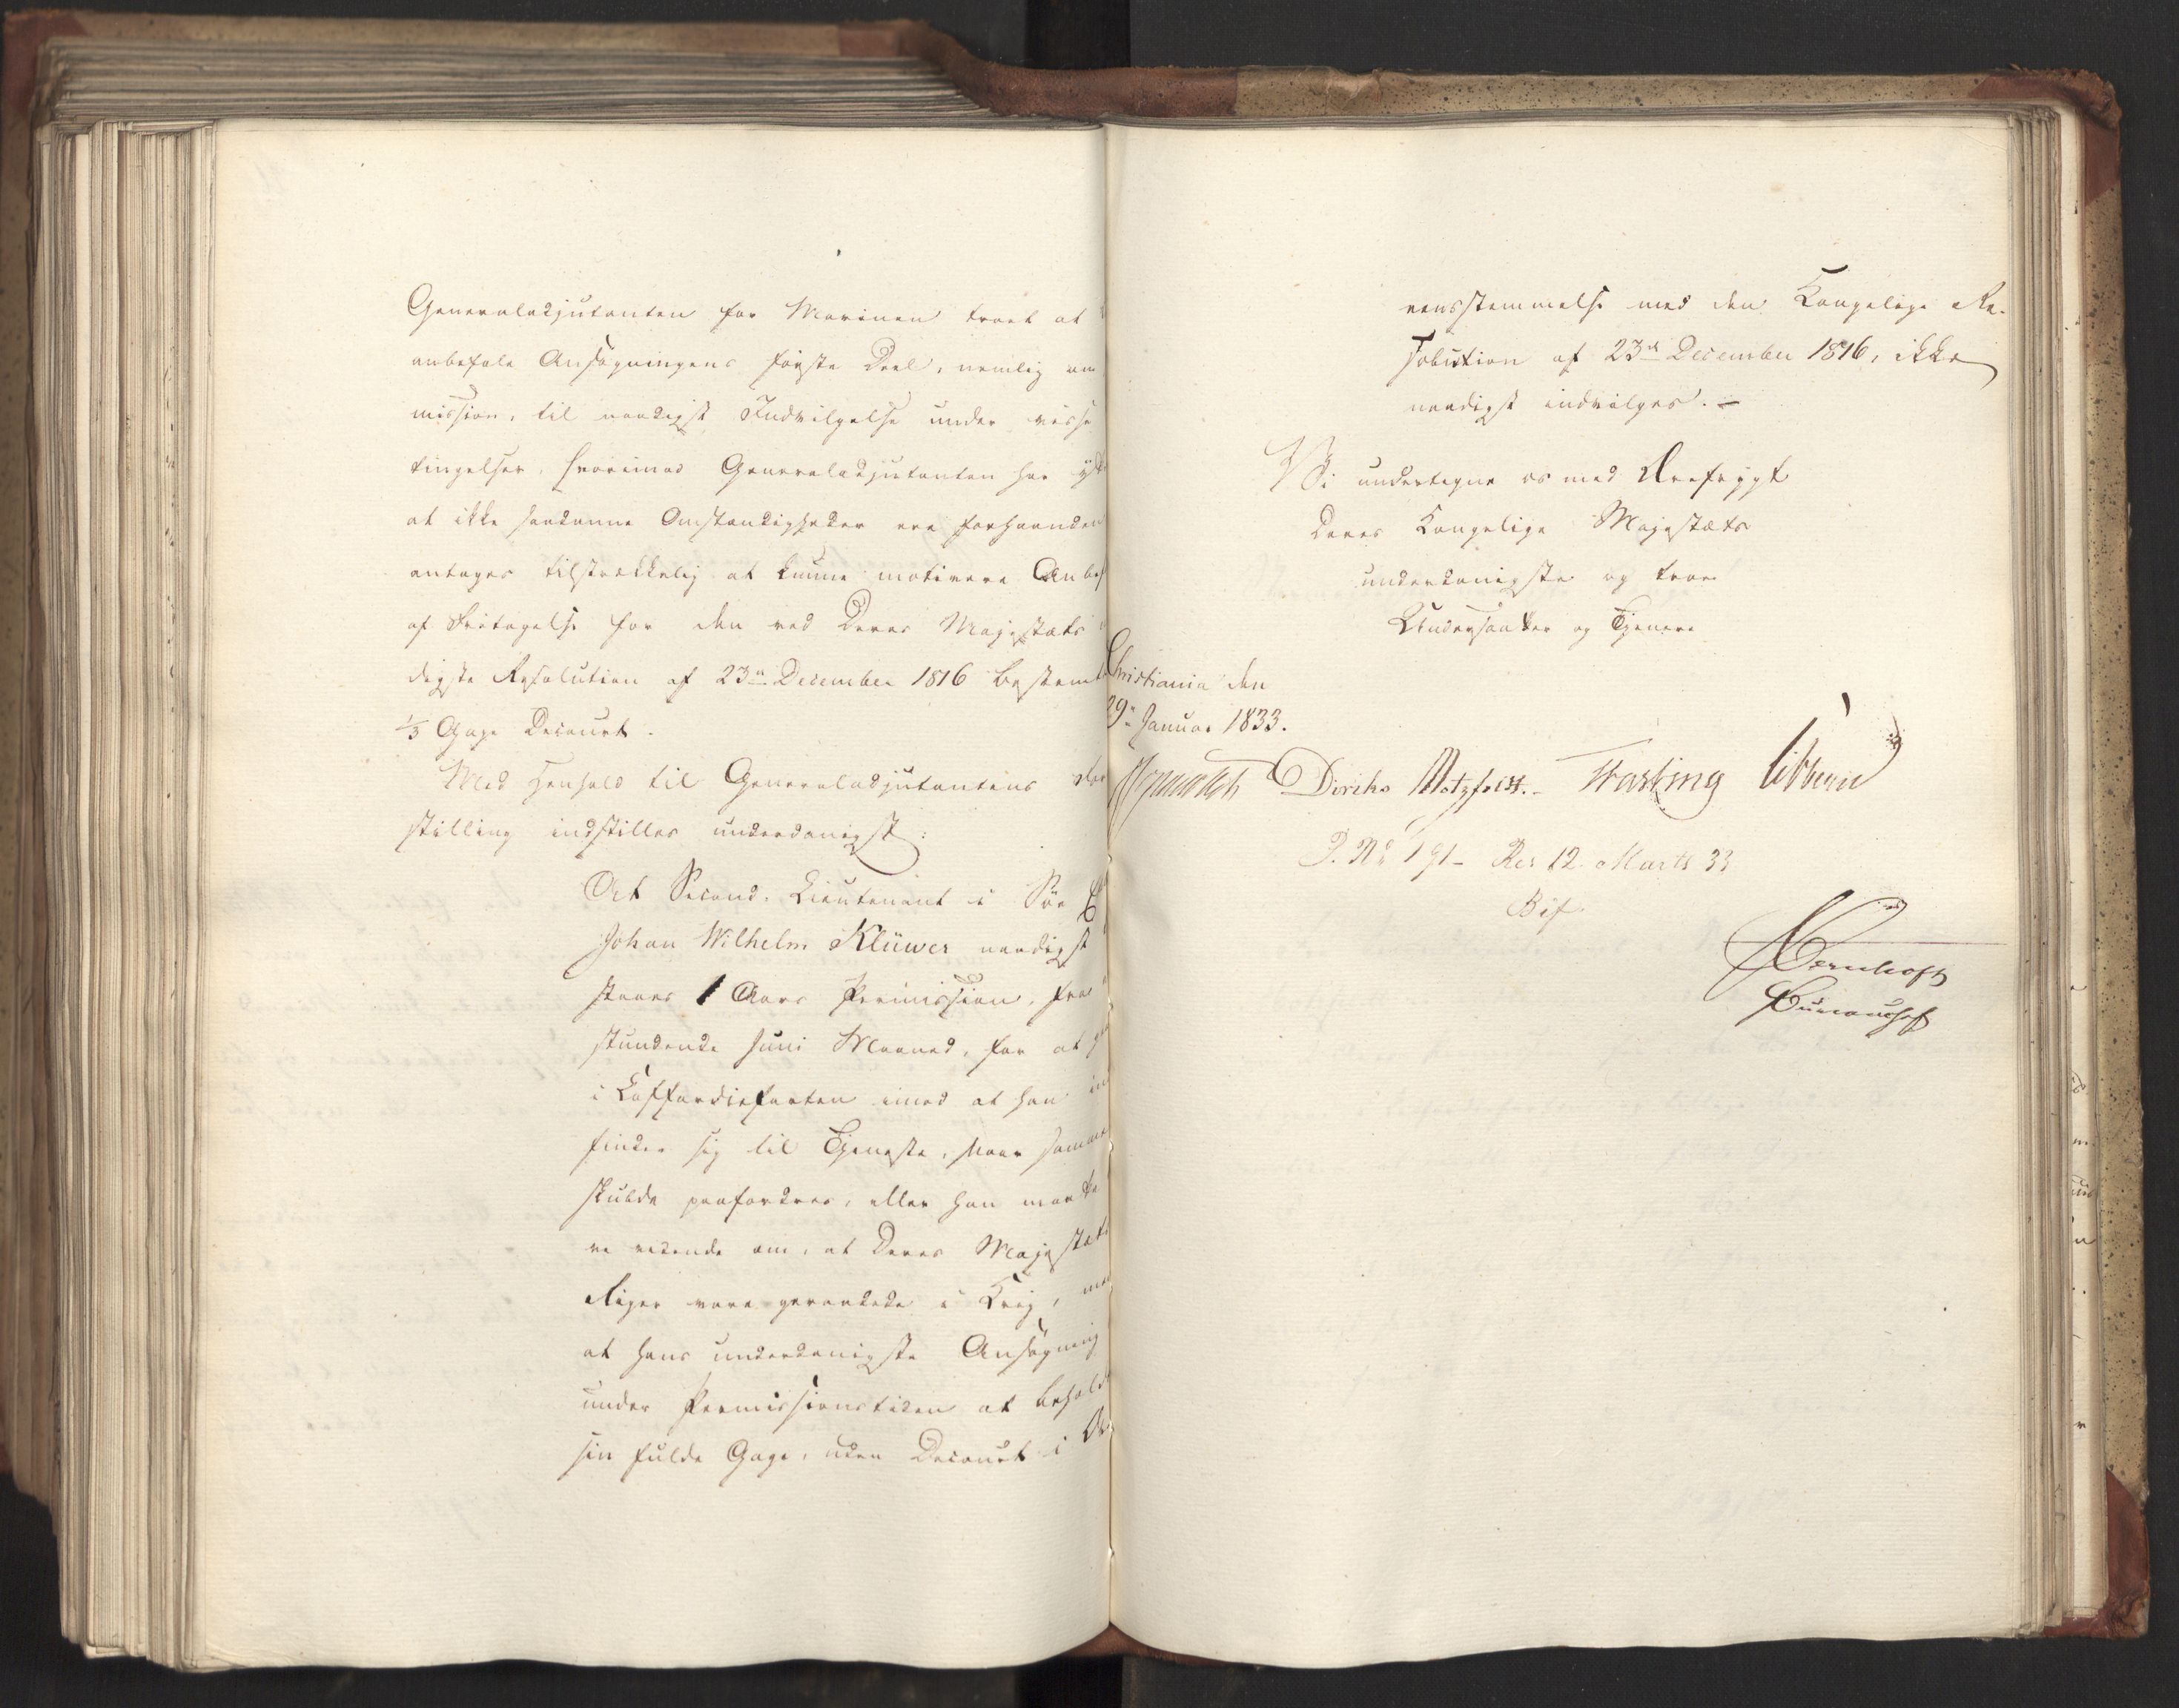 Generaladjutanten for Marinen troet at
anbefale Ansøgningens første Deel, nemlig om
mission, til naadigst Indvilgelse under visse
tingelser, hvorimod Generaladjutanten har
at ikke saadanne Omstændigheder ere forhaanden
antages tilstrækkelig at kunne motivere Anbef
af Fritagelse for den ved Deres Majestæts
digste Resolution af 23de December 1816 bestemte
1/3 Gage Decourt.
Med Henhold til Generaladjutantens For
stilling indstilles underdanigst:
At Second-Lieutenant i Søe
Johan Wilhelm Klüwer naadigst
staaes 1 Aars Permission, fra
stundende Juni Maaned, for at
i Koffardiefarten imod at han in
finder sig til Tjeneste, naar samme
skulde paafordres, eller han maatte
re vidende om, at Deres Majestæts
Riger vare geraadede i Krig, men
at hans underdanigste Ansøgning
under Permissionstiden at beholde
sin fulde Gage, uden Decourt i Ov
eensstemmelse med den Kongelige Re-
solution af 23de December 1816, ikke
naadigst indvilges. —
Vi undertegne os med Ærefrygt
Deres Kongelige Majestæts
underdanigste og troe
Undersaatter og Tjenere
Christiania den
29de Januar 1833.
Diriks Motzfeldt. Fasting Vibe
J. No 191 - Res 12 Marts 33
Bif
Bernhoft
Bureauchef